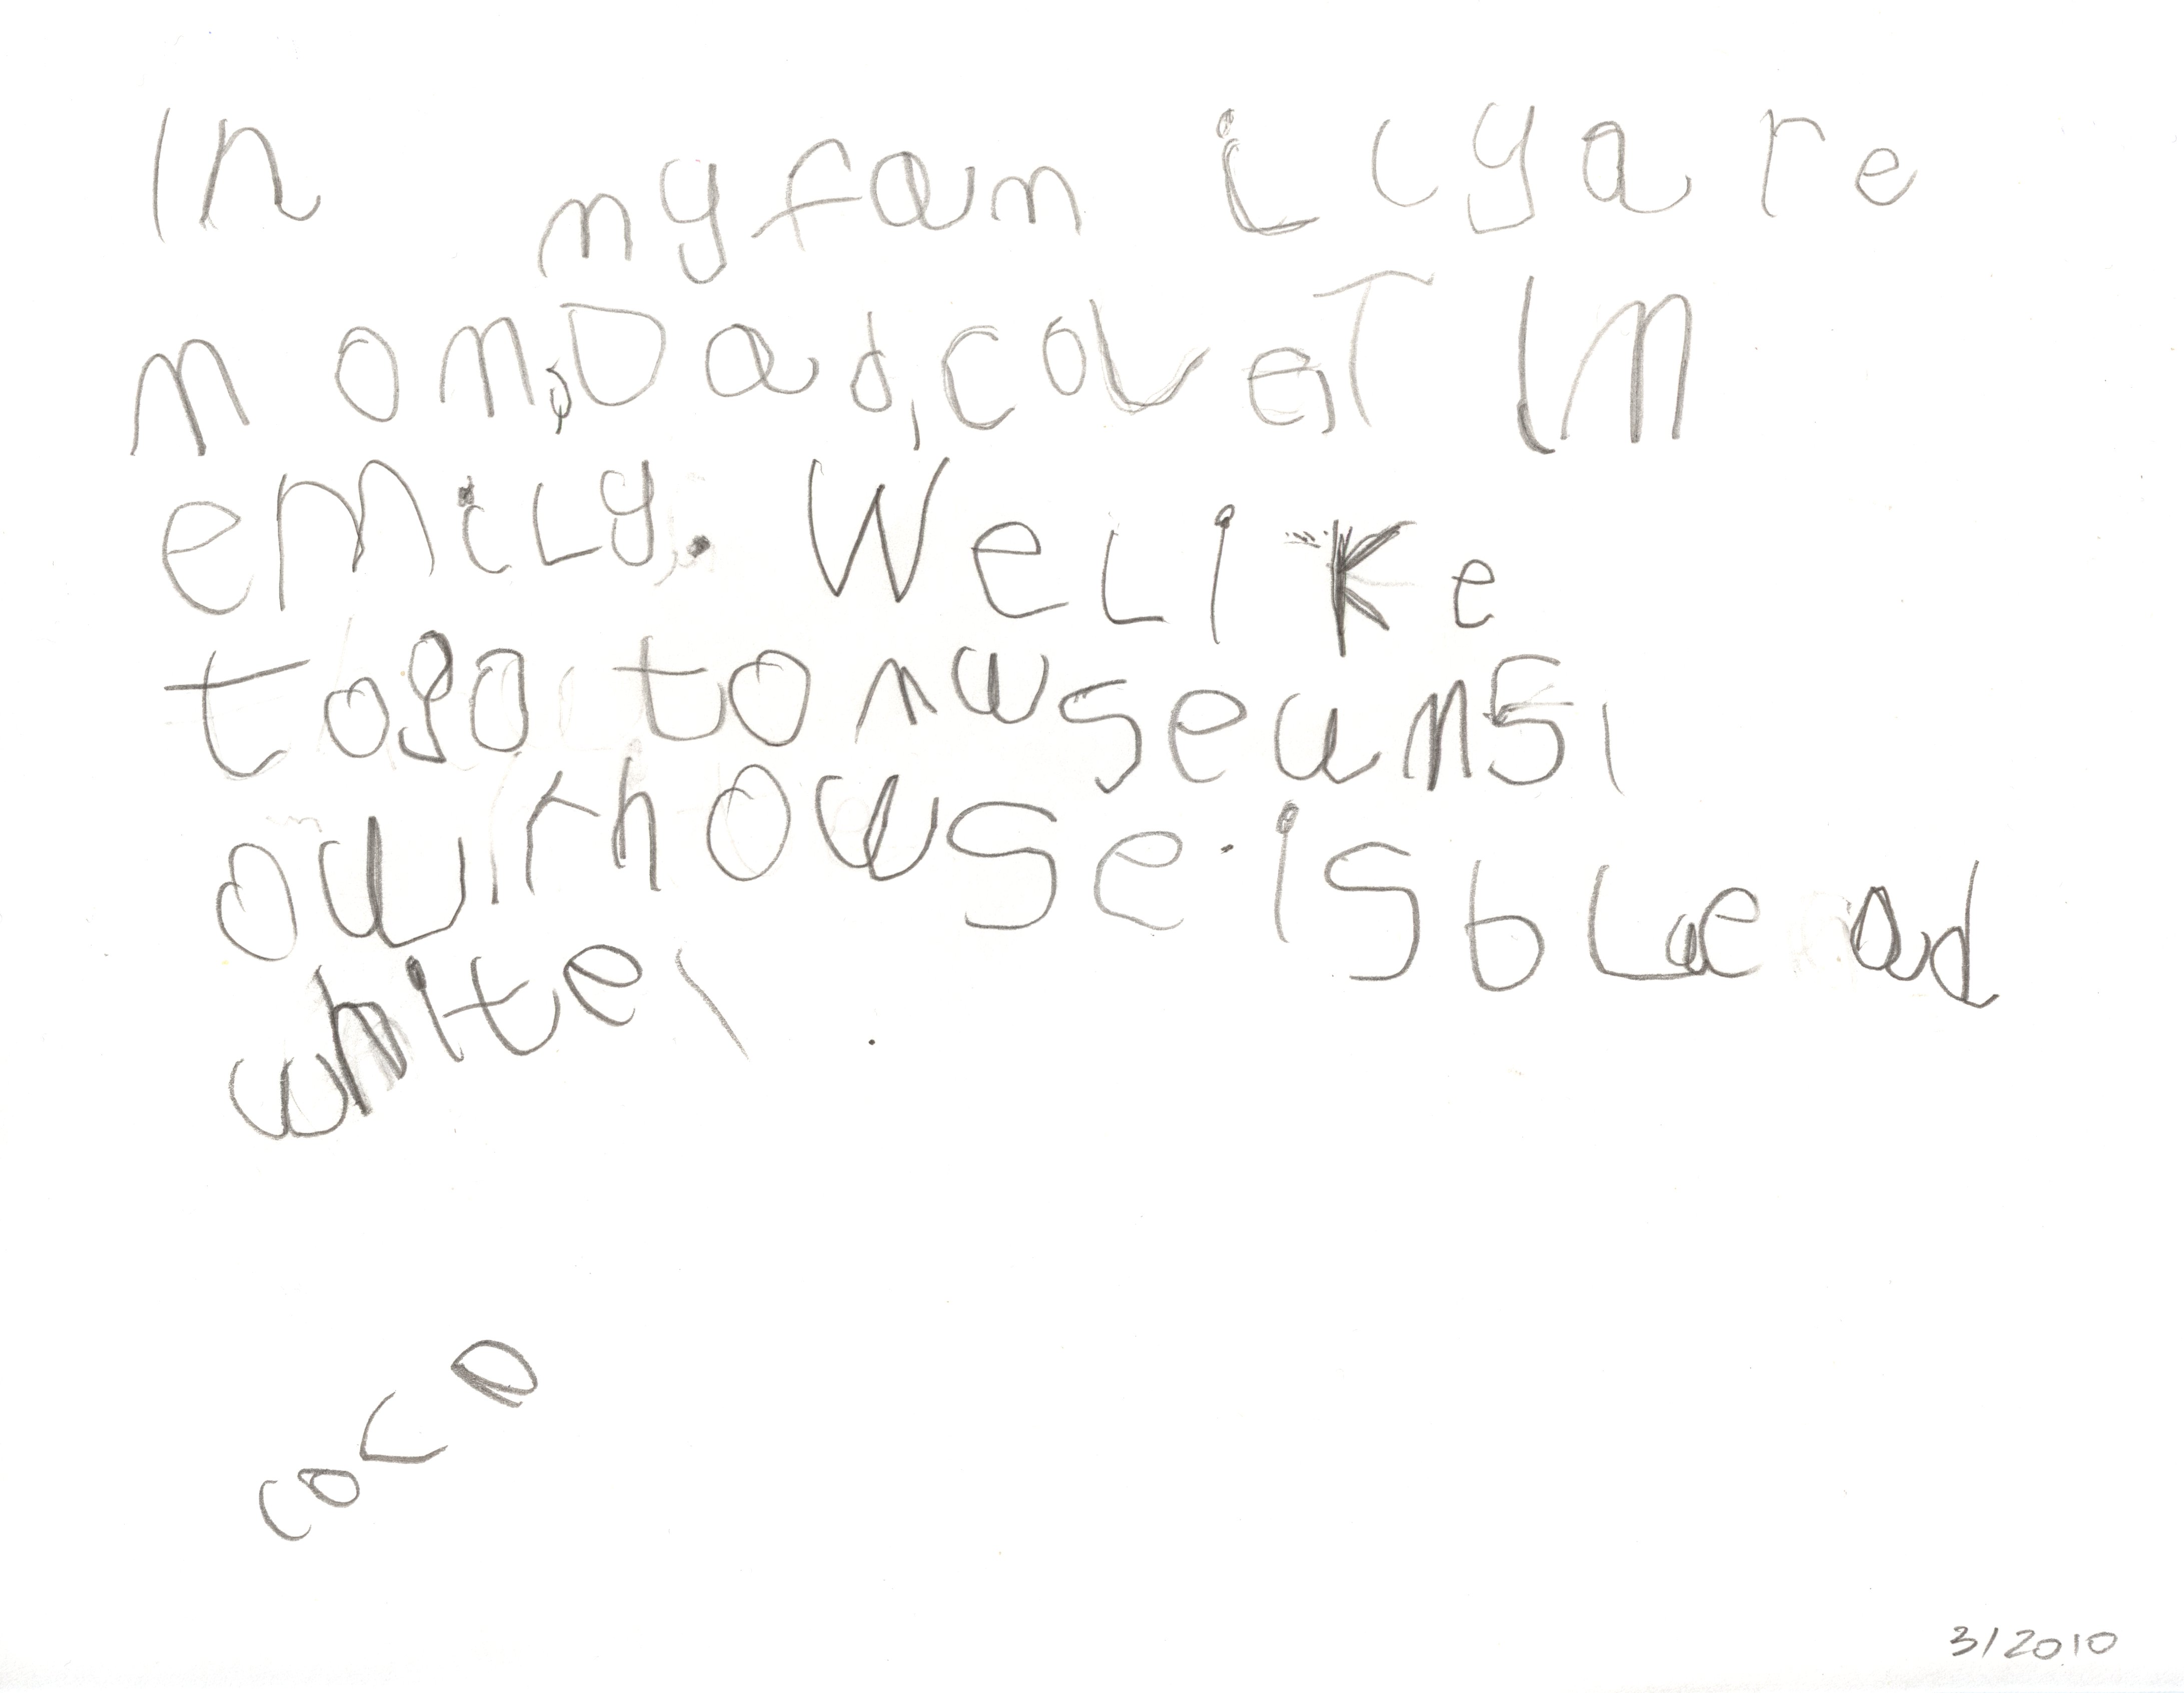 In my family are
mom, Dad, coleT Im
emily. We like
to go to museums,
our house is blue ad
white,
cole
3/2010